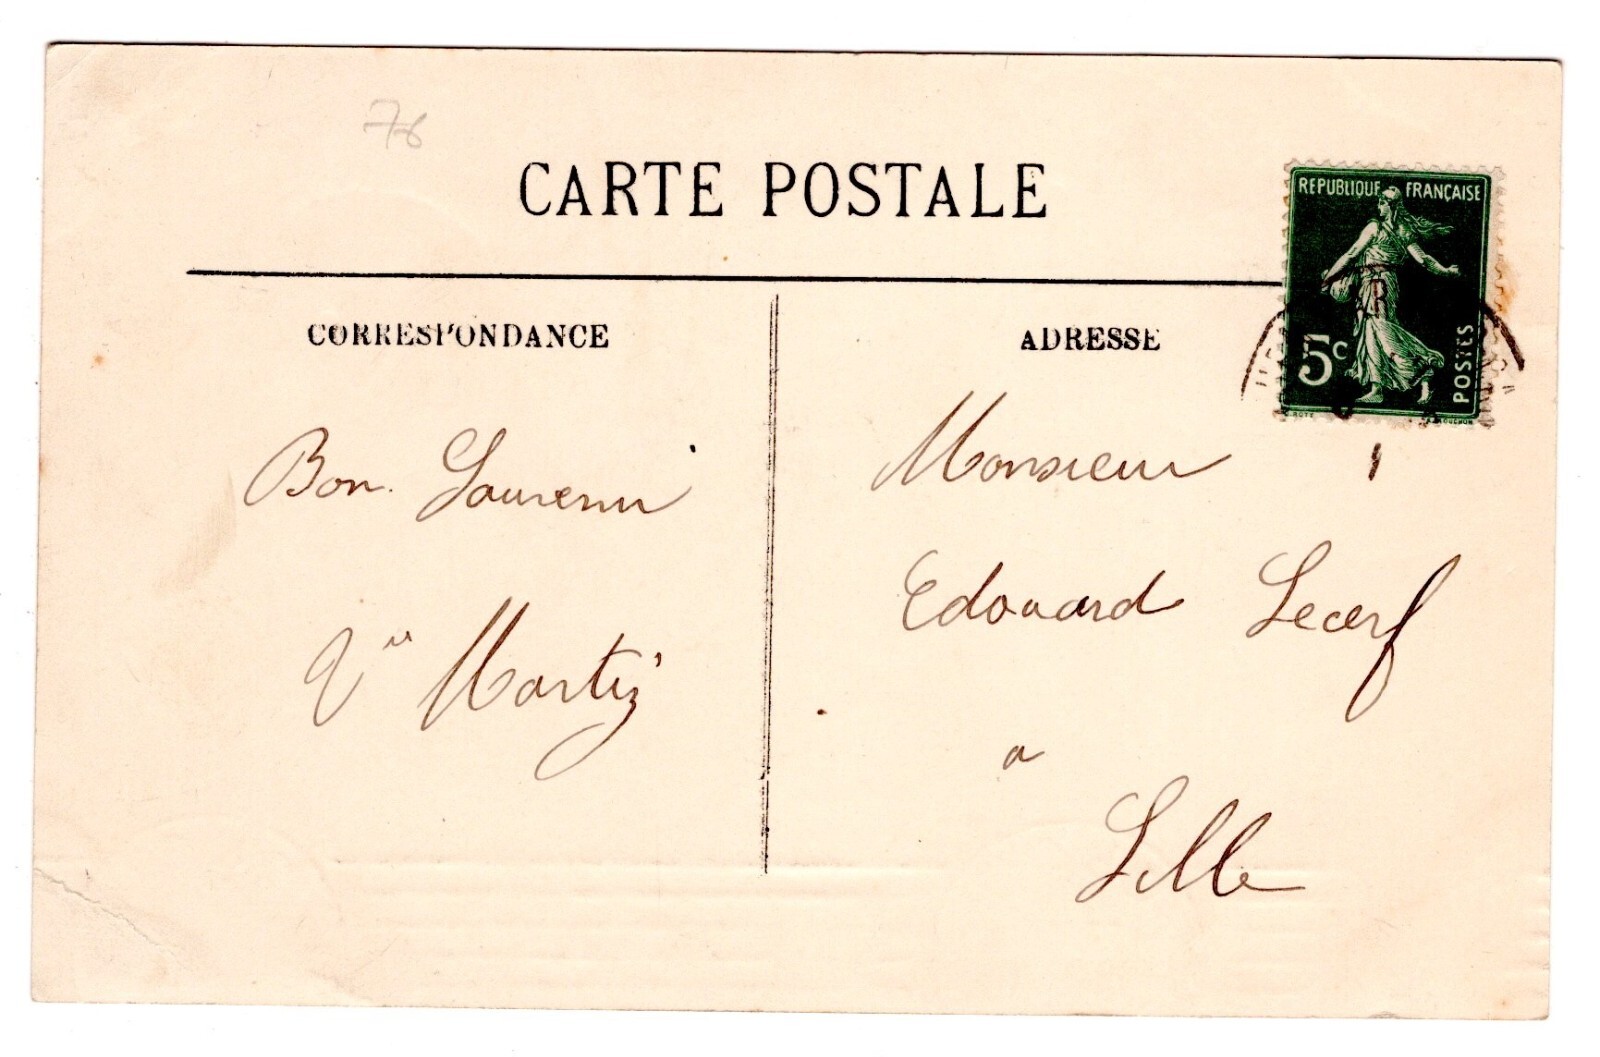 76
CARTE POSTALE
REPUBLIQUE FRANÇAISE
5c
POSTES
CORRESPONDANCE
ADRESSE
Bon Souvenir
Martiz
Monsieur
Edouard Lecerf
a
Lille